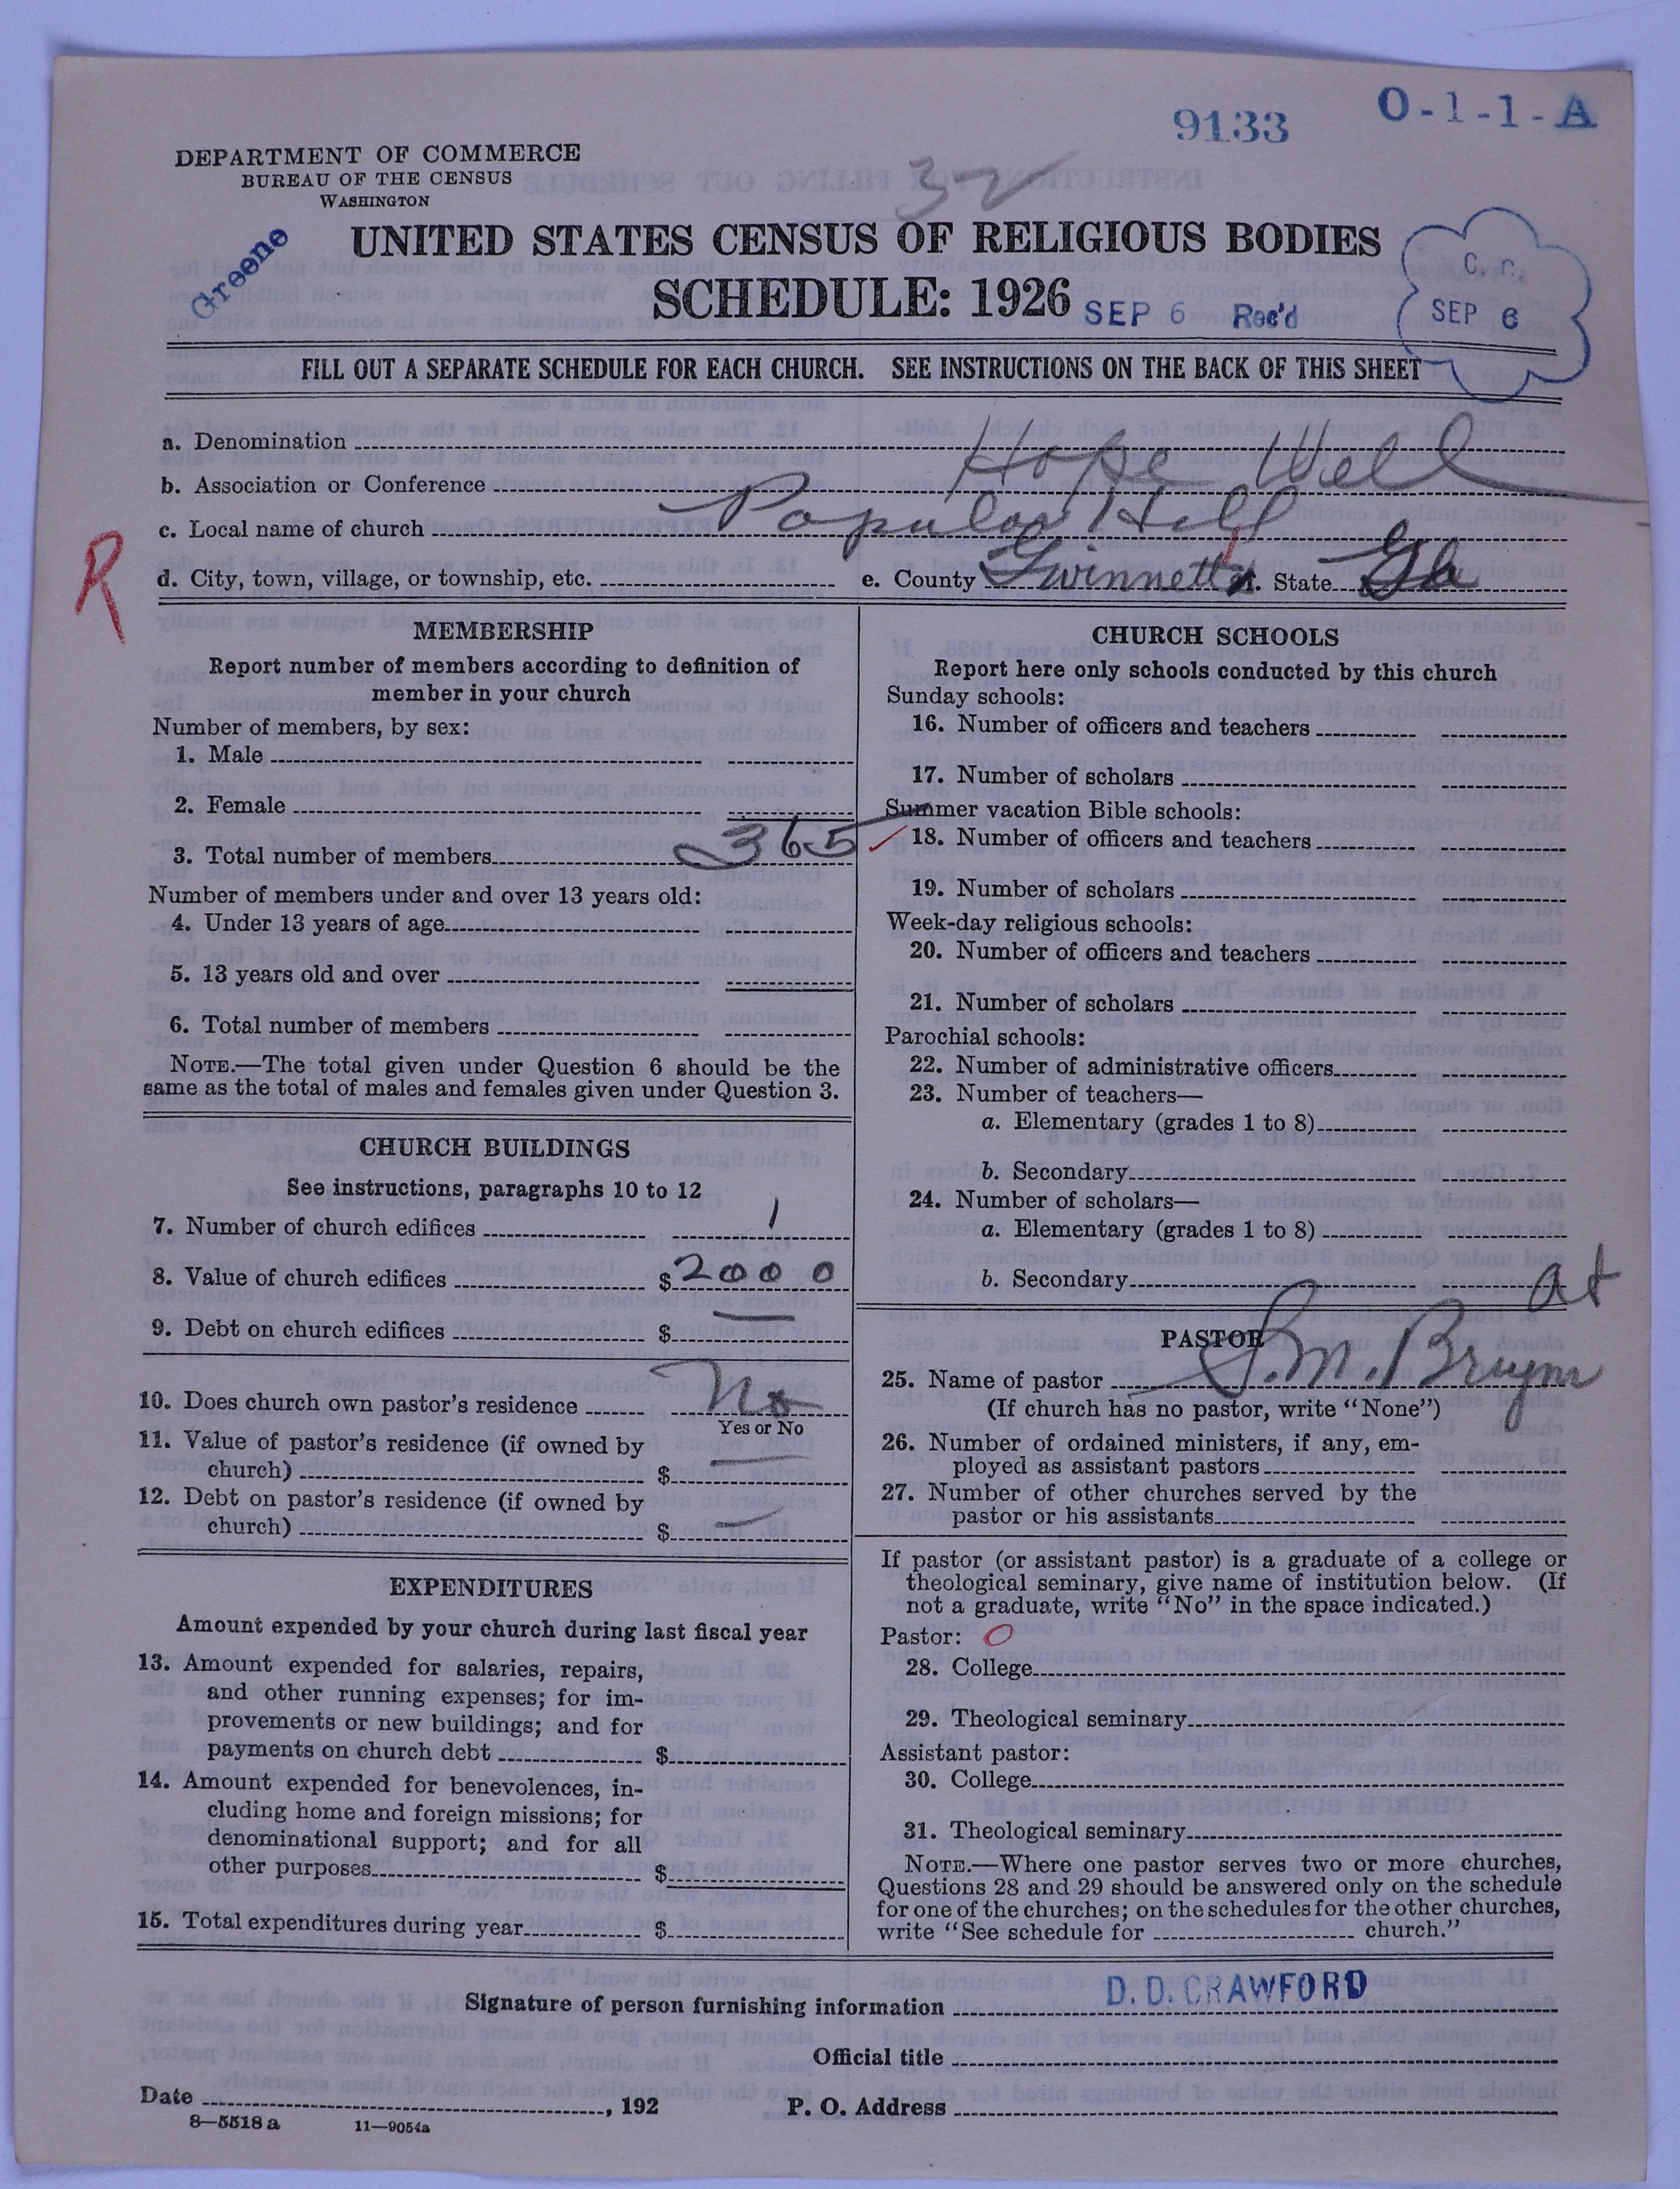 9133
O-1-1-A
32
DEPARTMENT OF COMMERCE
BUREAU OF THE CENSUS
WASHINGTON
Greene
UNITED STATES CENSUS OF RELIGIOUS BODIES
SCHEDULE: 1926
SEP 6 Rec'd
C. C.
SEP 6
FILL OUT A SEPARATE SCHEDULE FOR EACH CHURCH. SEE INSTRUCTIONS ON THE BACK OF THIS SHEET
a. Denomination
b. Association or Conference Hope Well
c. Local name of church Popular Hill
R
d. City, town, village, or township, etc. e. County Gwinnett f. State Ga
MEMBERSHIP
Report number of members according to definition of
member in your church
Number of members, by sex:
1. Male
2. Female
3. Total number of members 365
Number of members under and over 13 years old:
4. Under 13 years of age
5. 13 years old and over
6. Total number of members
NOTE.—The total given under Question 6 should be the
same as the total of males and females given under Question 3.
CHURCH BUILDINGS
See instructions, paragraphs 10 to 12
7. Number of church edifices 1
8. Value of church edifices $2000
9. Debt on church edifices $ —
10. Does church own pastor's residence No
Yes or No
11. Value of pastor's residence (if owned by
church) $ —
12. Debt on pastor's residence (if owned by
church) $ —
EXPENDITURES
Amount expended by your church during last fiscal year
13. Amount expended for salaries, repairs,
and other running expenses; for im-
provements or new buildings; and for
payments on church debt $
14. Amount expended for benevolences, in-
cluding home and foreign missions; for
denominational support; and for all
other purposes $
15. Total expenditures during year $
CHURCH SCHOOLS
Report here only schools conducted by this church
Sunday schools:
16. Number of officers and teachers
17. Number of scholars
Summer vacation Bible schools:
18. Number of officers and teachers
19. Number of scholars
Week-day religious schools:
20. Number of officers and teachers
21. Number of scholars
Parochial schools:
22. Number of administrative officers
23. Number of teachers—
a. Elementary (grades 1 to 8)
b. Secondary
24. Number of scholars—
a. Elementary (grades 1 to 8)
b. Secondary
at
PASTOR
25. Name of pastor S.M. Bryant
(If church has no pastor, write "None")
26. Number of ordained ministers, if any, em-
ployed as assistant pastors
27. Number of other churches served by the
pastor or his assistants
If pastor (or assistant pastor) is a graduate of a college or
theological seminary, give name of institution below. (If
not a graduate, write "No" in the space indicated.)
Pastor: O
28. College
29. Theological seminary
Assistant pastor:
30. College
31. Theological seminary
NOTE.—Where one pastor serves two or more churches,
Questions 28 and 29 should be answered only on the schedule
for one of the churches; on the schedules for the other churches,
write "See schedule for church."
Signature of person furnishing information D. D. CRAWFORD
Official title
Date , 192 P. O. Address
8—5518 a 11—9054a